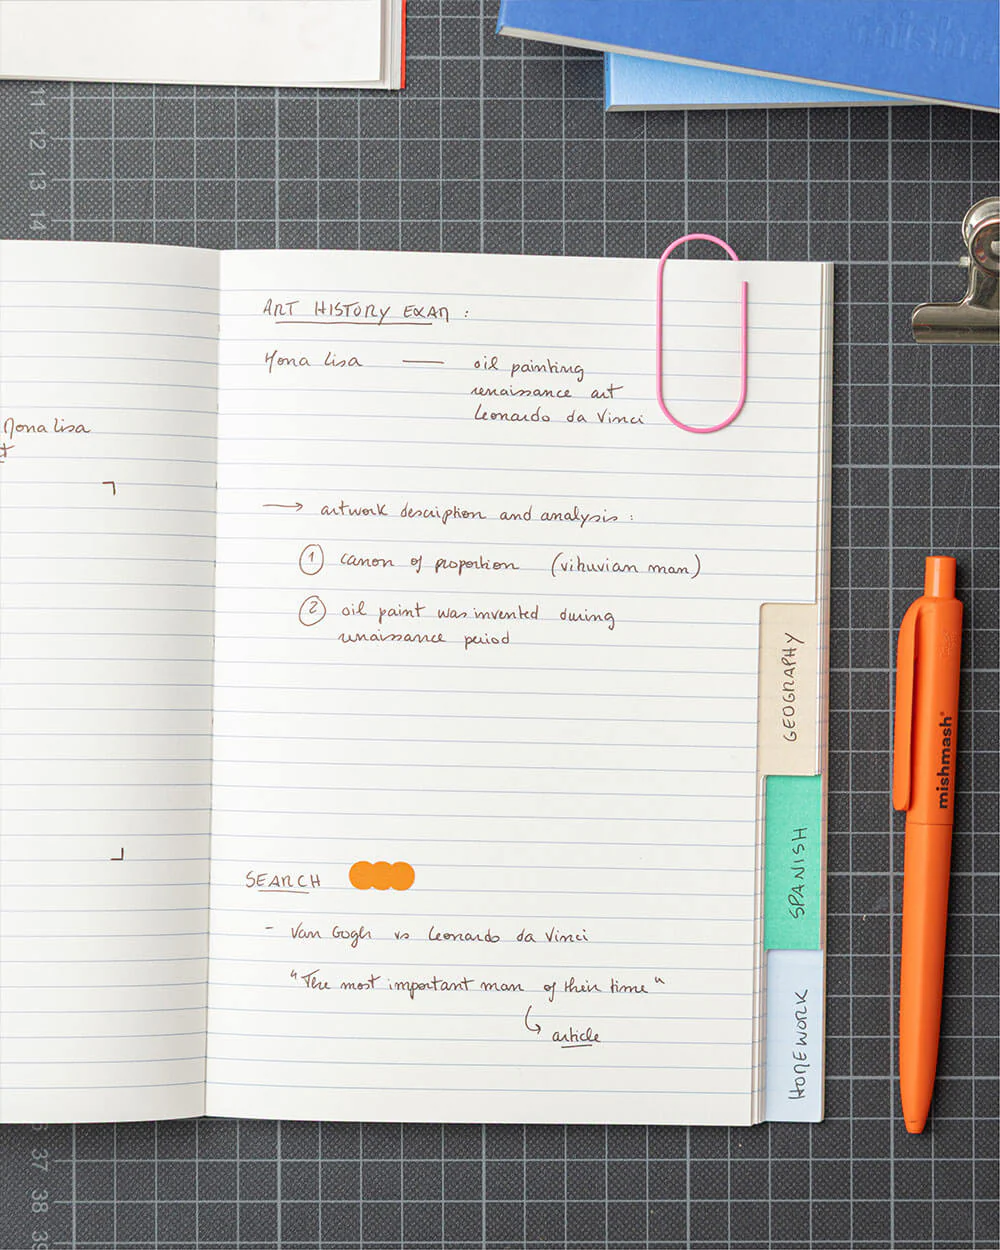 11
12
13
14
Mona Lisa
ART HISTORY EXAM :
Mona Lisa — oil painting
renaissance art
Leonardo da Vinci
→ artwork description and analysis :
① canon of proportion (vitruvian man)
② oil paint was invented during
renaissance period
SEARCH
- Van Gogh vs Leonardo da Vinci
"The most important man of their time"
article
GEOGRAPHY
SPANISH
HOMEWORK
mishmash®
37
38
39